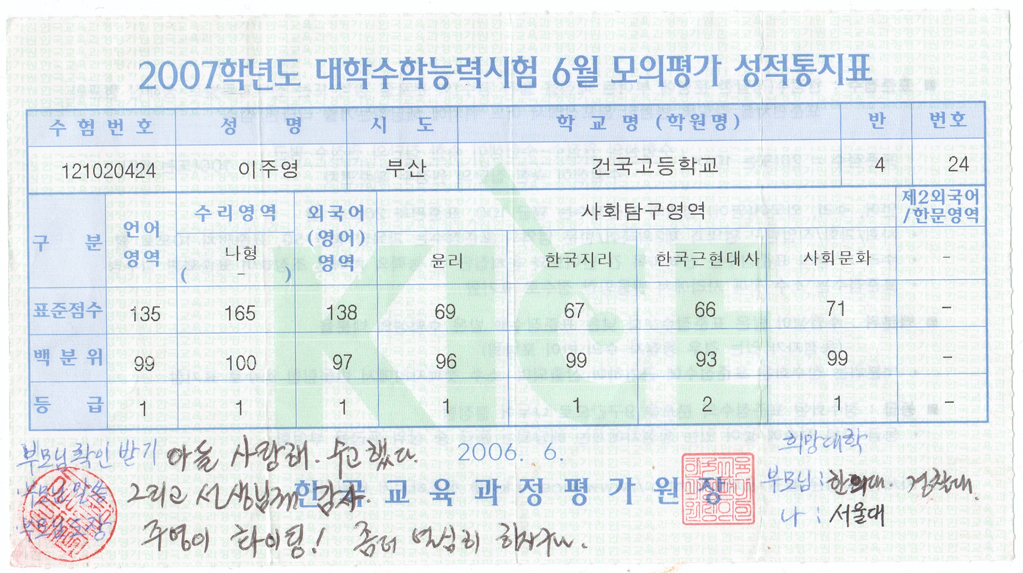 2007학년도 대학수학능력시험 6월 모의평가 성적통지표
수험번호 성 명 시 도 학교명 (학원명) 반 번호
121020424 이주영 부산 건국고등학교 4 24
구 분 언어영역 수리영역 외국어(영어)영역 사회탐구영역 제2외국어/한문영역
나형 ( – ) 윤리 한국지리 한국근현대사 사회문화 –
표준점수 135 165 138 69 67 66 71 –
백분위 99 100 97 96 99 93 99 –
등급 1 1 1 1 1 2 1 –
2006. 6.
한국교육과정평가원장
부모님확인받기 아들 사랑해. 수고했다.
부모님말씀 그리고 선생님께 감사.
부모님도장 주영이 화이팅! 좀더 열심히 하자구나.
희망대학
부모님: 한의대. 경찰대.
나: 서울대
kice